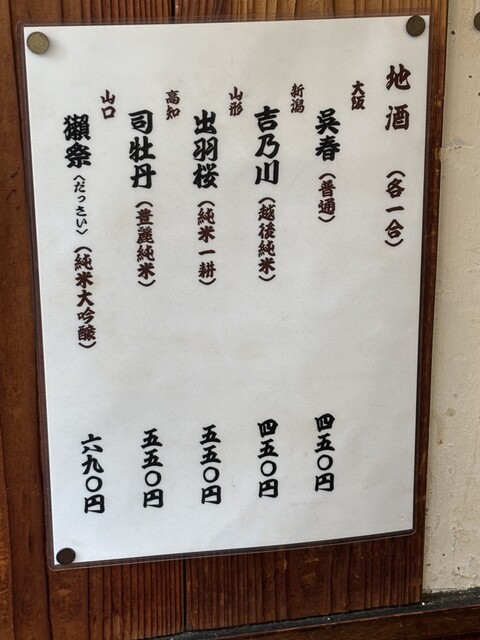 地酒 （各一合）
大阪
呉春（普通） 四五〇円
新潟
吉乃川（越後純米） 四五〇円
山形
出羽桜（純米一耕） 五五〇円
高知
司牡丹（豊麗純米） 五五〇円
山口
獺祭〈だっさい〉（純米大吟醸） 六九〇円